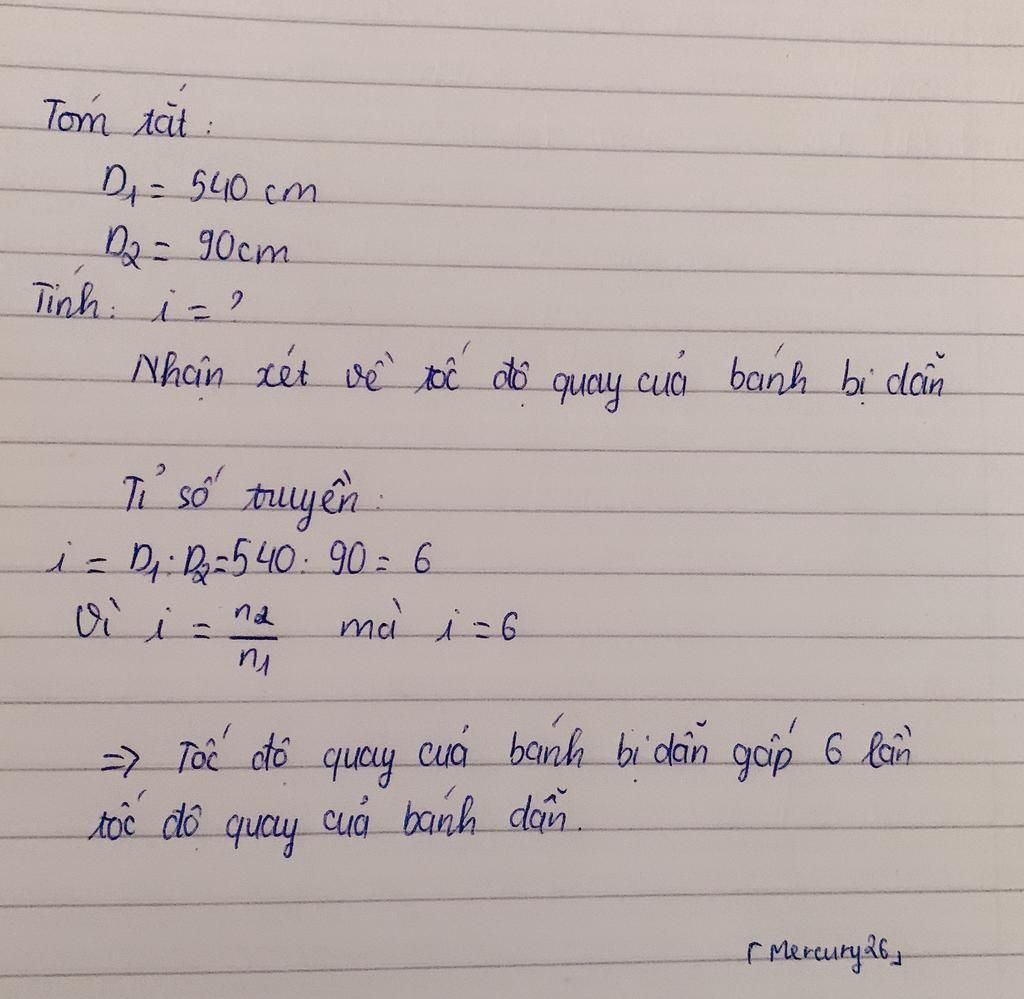 Tóm tắt :
D1 = 540 cm
D2 = 90cm
Tính : i = ?
Nhận xét về tốc độ quay của bánh bị dẫn
Tỉ số truyền :
i = D1 : D2 = 540 : 90 = 6
Vì i = n2/n1 mà i = 6
=> Tốc độ quay của bánh bị dẫn gấp 6 lần
tốc độ quay của bánh dẫn.
「Mercury26」